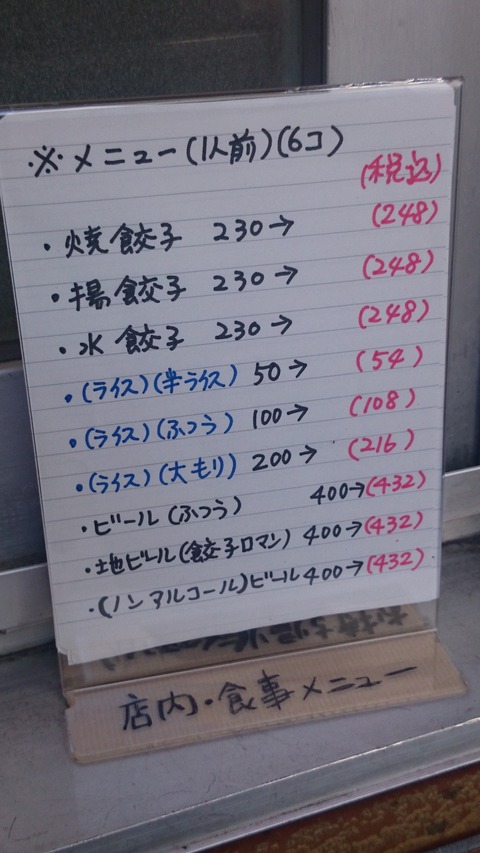 ※メニュー(1人前)(6コ)
(税込)
・焼餃子 230→ (248)
・揚餃子 230→ (248)
・水餃子 230→ (248)
・(ライス)(半ライス) 50→ (54)
・(ライス)(ふつう) 100→ (108)
・(ライス)(大もり) 200→ (216)
・ビール(ふつう) 400→(432)
・地ビール(餃子ロマン) 400→(432)
・(ノンアルコール)ビール400→(432)
店内・食事メニュー